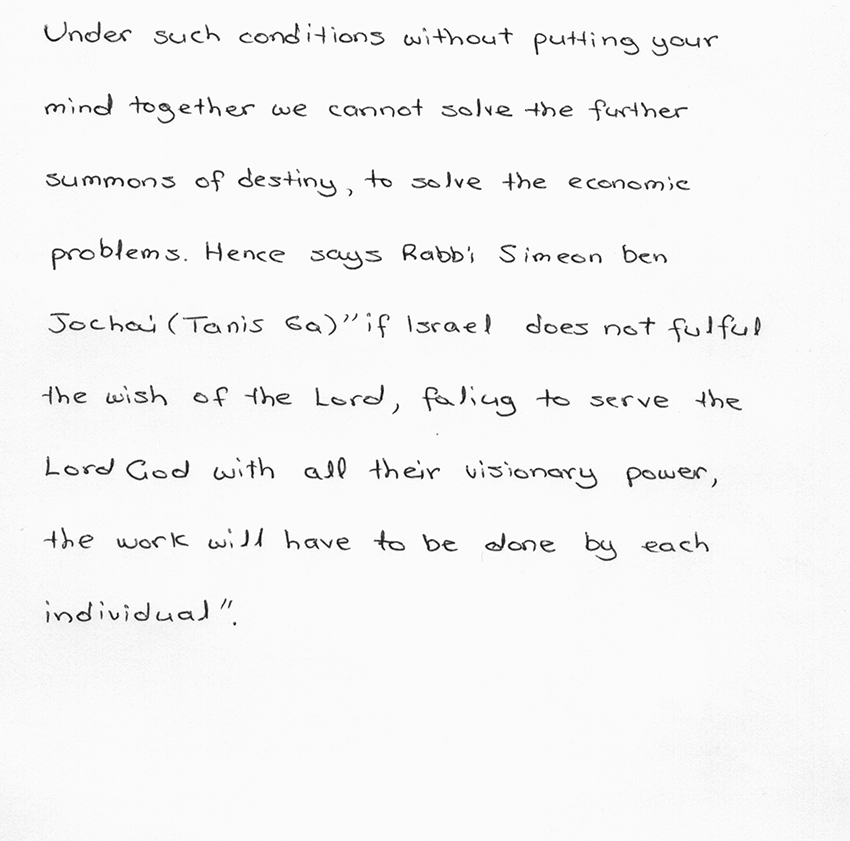 Under such conditions without putting your
mind together we cannot solve the further
summons of destiny, to solve the economic
problems. Hence says Rabbi Simeon ben
Jochai (Tanis 6a)" if Israel does not fulful
the wish of the Lord, faliug to serve the
Lord God with all their visionary power,
the work will have to be done by each
individual".